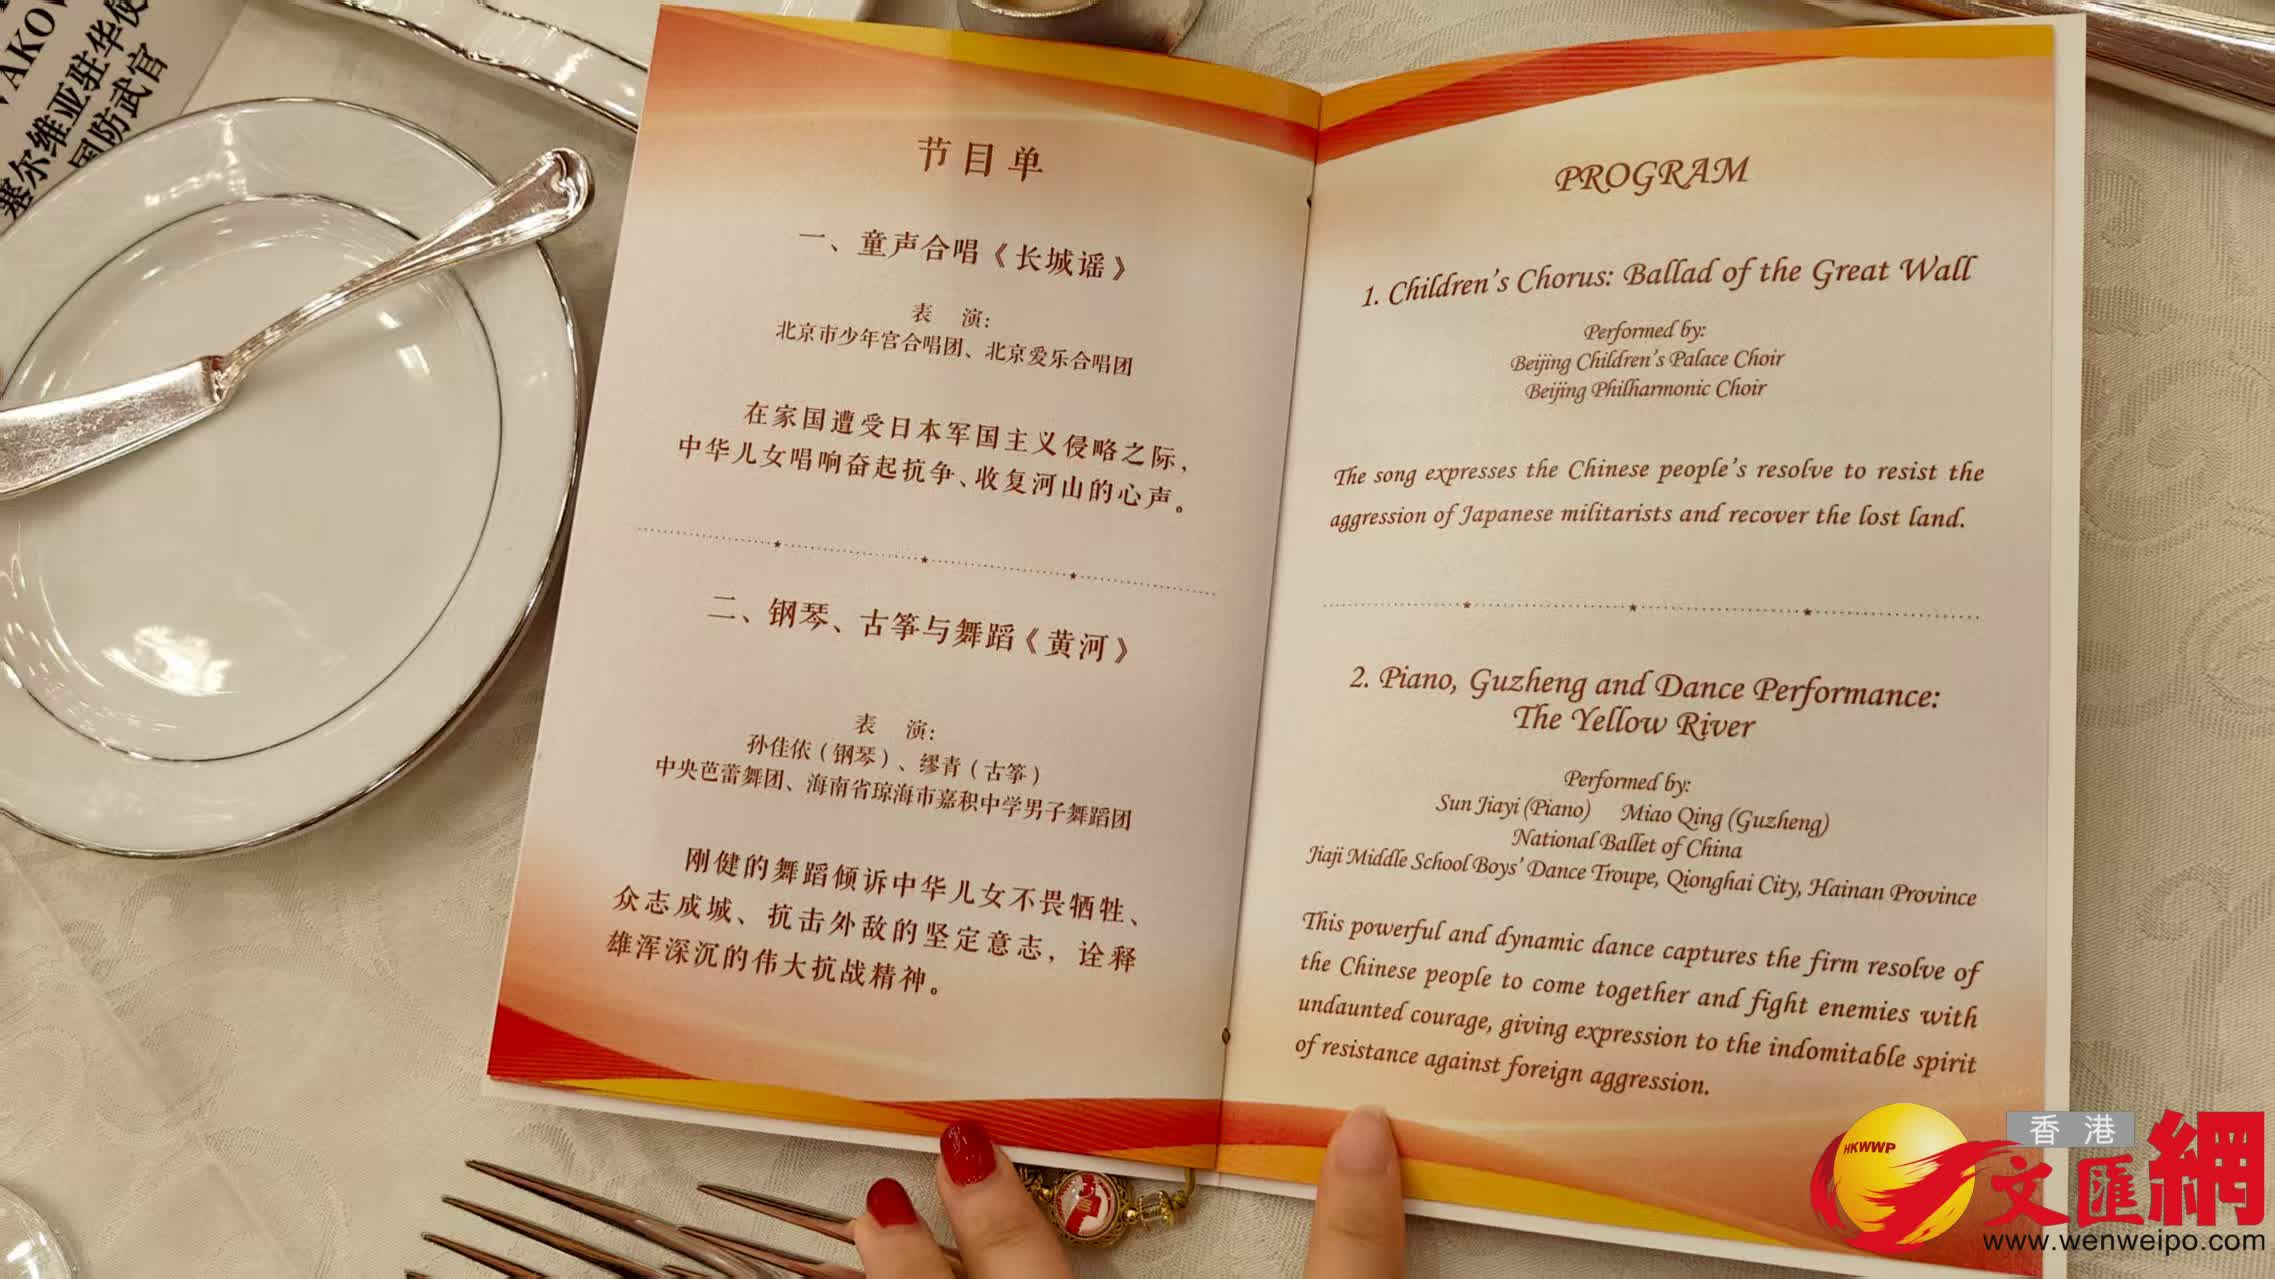 AKOV
塞尔维亚驻华使
国防武官
节目单
一、童声合唱《长城谣》
表 演：
北京市少年宫合唱团、北京爱乐合唱团
在家国遭受日本军国主义侵略之际，
中华儿女唱响奋起抗争、收复河山的心声。
二、钢琴、古筝与舞蹈《黄河》
表 演：
孙佳依（钢琴）、缪青（古筝）
中央芭蕾舞团、海南省琼海市嘉积中学男子舞蹈团
刚健的舞蹈倾诉中华儿女不畏牺牲、
众志成城、抗击外敌的坚定意志，诠释
雄浑深沉的伟大抗战精神。
PROGRAM
1. Children's Chorus: Ballad of the Great Wall
Performed by:
Beijing Children's Palace Choir
Beijing Philharmonic Choir
The song expresses the Chinese people's resolve to resist the
aggression of Japanese militarists and recover the lost land.
2. Piano, Guzheng and Dance Performance:
The Yellow River
Performed by:
Sun Jiayi (Piano) Miao Qing (Guzheng)
National Ballet of China
Jiaji Middle School Boys' Dance Troupe, Qionghai City, Hainan Province
This powerful and dynamic dance captures the firm resolve of
the Chinese people to come together and fight enemies with
undaunted courage, giving expression to the indomitable spirit
of resistance against foreign aggression.
HKWWP
香港
文匯網
www.wenweipo.com